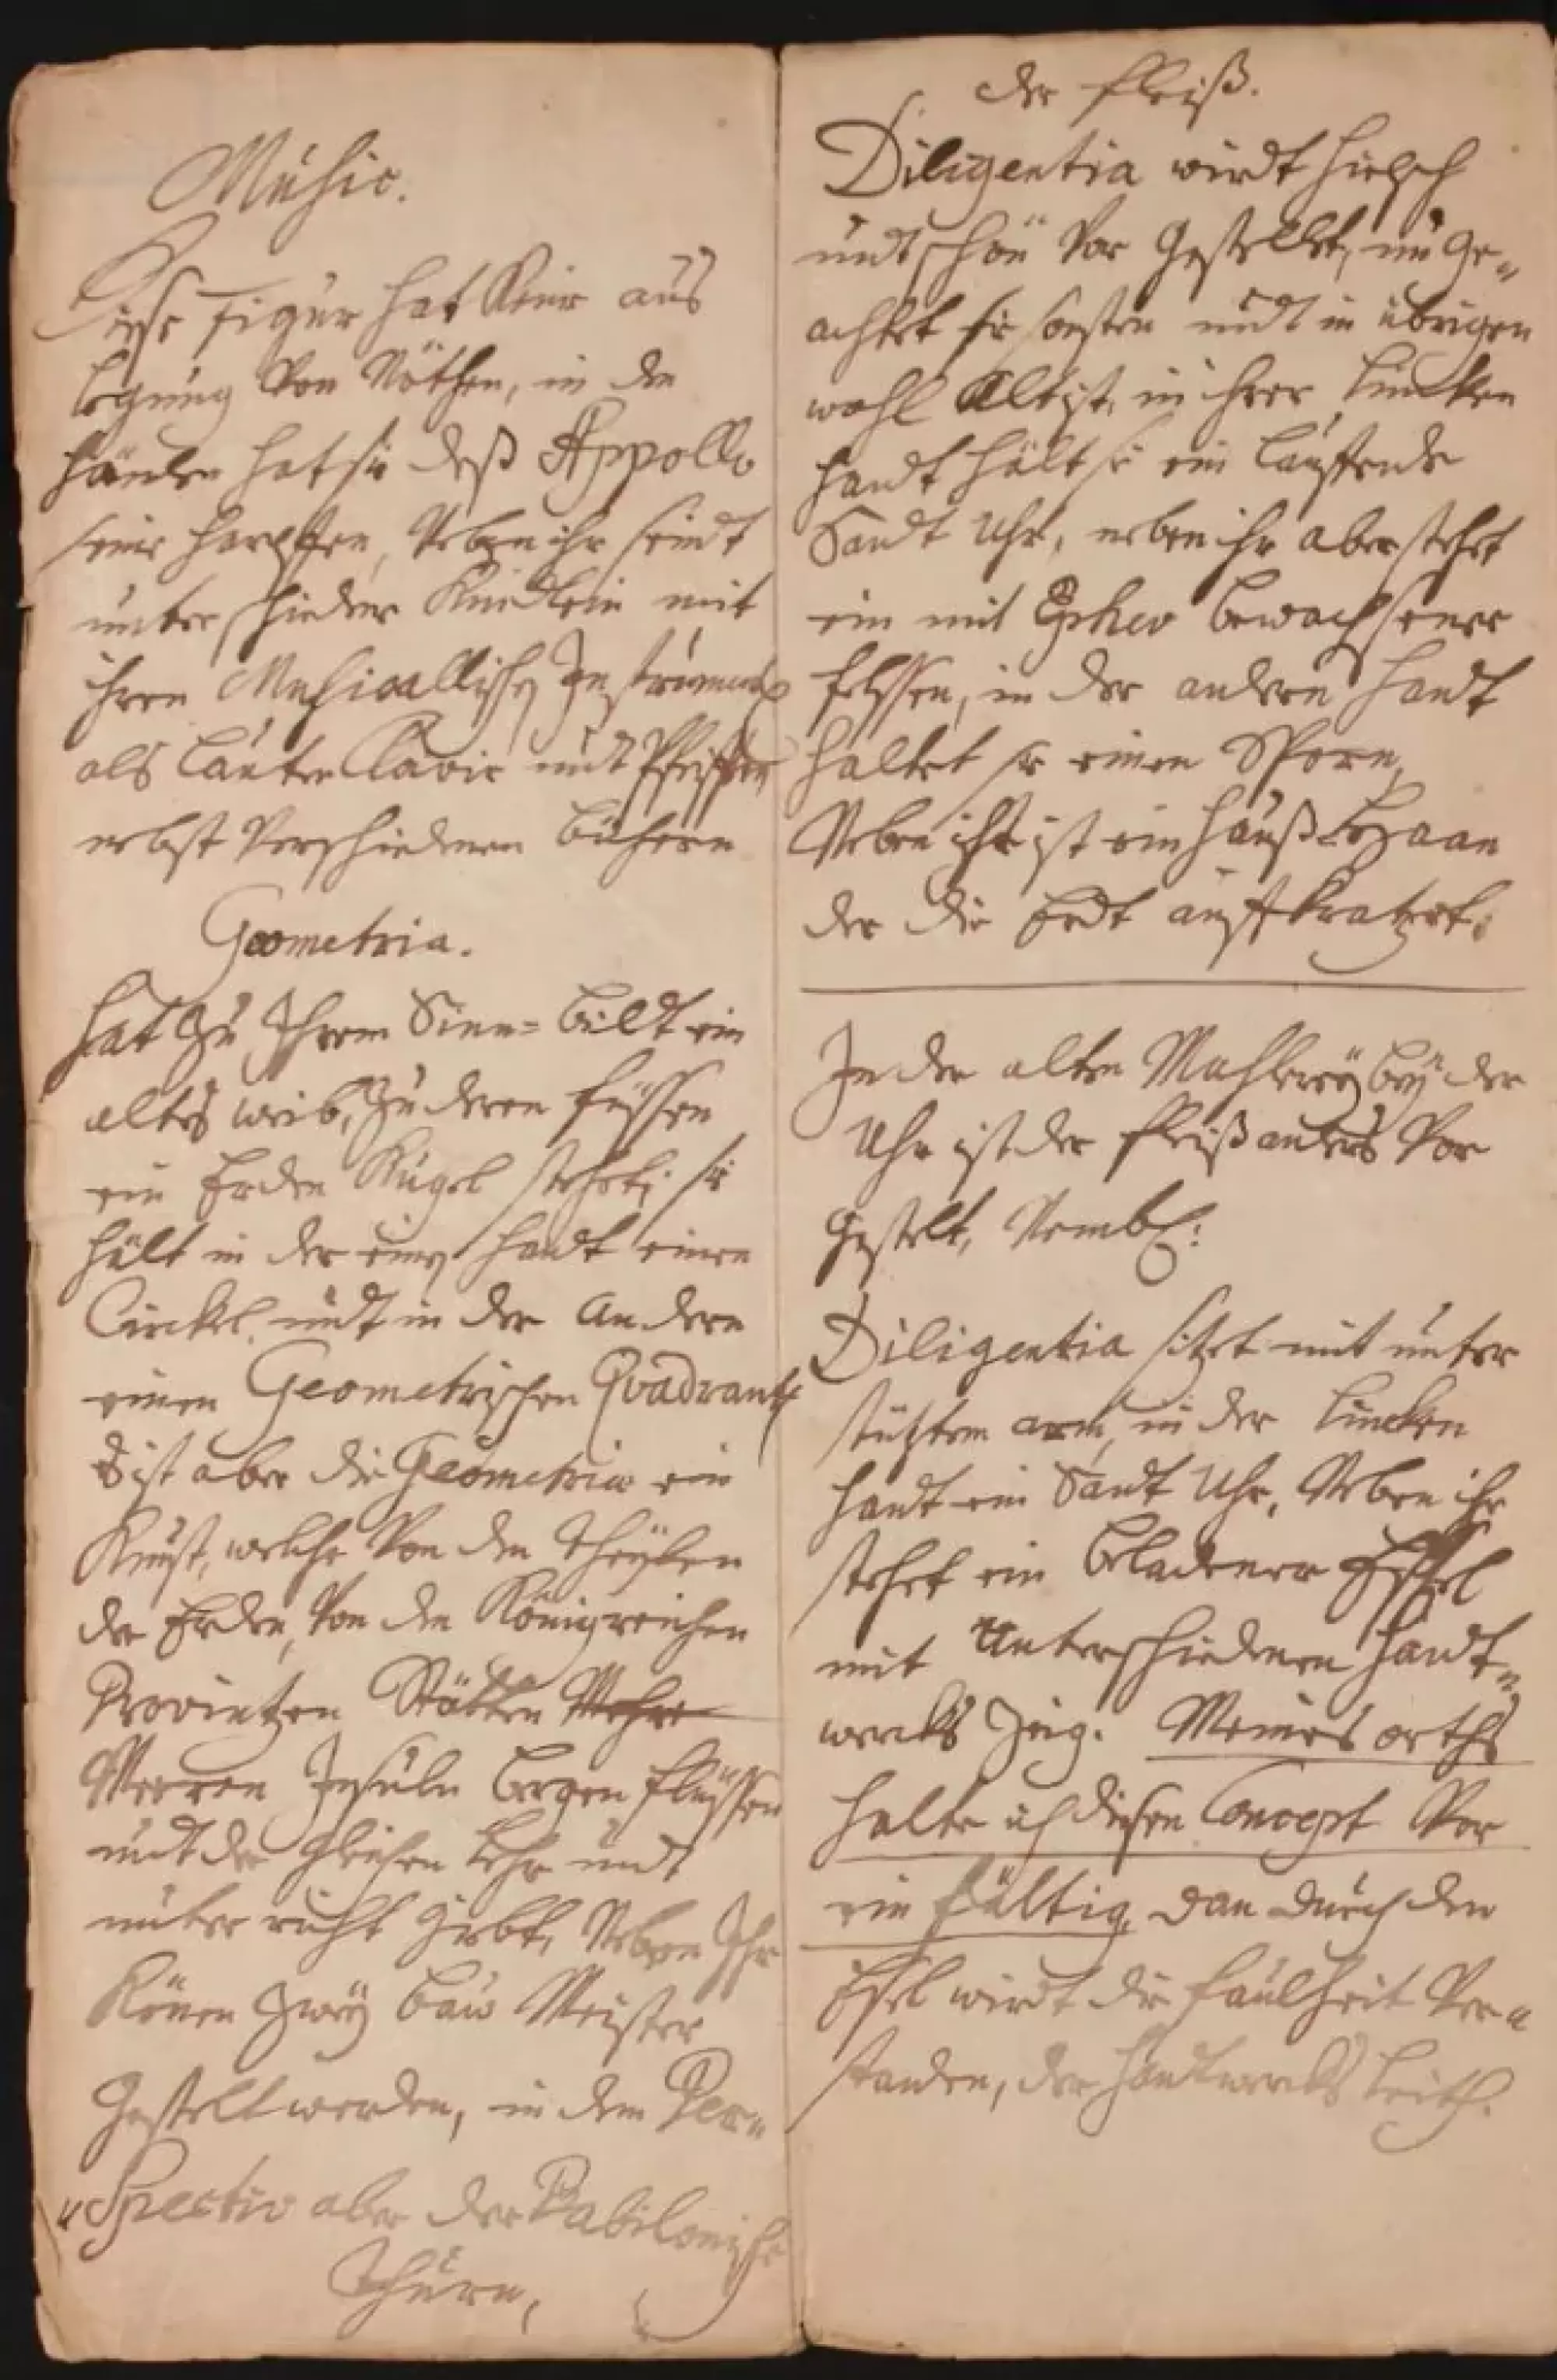 Music.
Diese Figur hat Keine aus
legung Von Nöthen, in den
händen hat sie deß Appollo
seine Harpffen, Neben ihr seindt
unterschiedene Kindlein mit
ihren Musicallischen Instrument
als lauten Clavir undt Pfeiffen
nebst Verschiedenen büchern
Geometria.
Hat Zu Ihrem Sinn= bildt ein
altes weib, Zu deren füssen
ein Erden Kugel stehet; sie
hält in der einen handt einen
Circkel, undt in der Andern
einen Geometrischen Quadranten
Es ist aber die Geometria ein
Kunst, welche Von den Theyllen
der Erden, Von den Königreichen
Provintzen Stätten Mehre
Meeren Insuln bergen flüssen
undt der gleichen Lehr undt
unter richt giebt, Neben Ihr
Könen Zwey bau Meister
gestelt werden, in dem Per„
„Spectiv aber der Babilonische
Thurn,
der fleiß.
Diligentia wirdt hipsch
undt schön Vor gestellet, un ge„
achtet sie sonsten undt in übrigen
wohl Alt ist, in ihrer Lincken
handt hält sie ein lauffende
Sandt Uhr, neben ihr aber stehet
ein mit Epheu bewachsener
felssen, in der andern handt
haltet sie einen Sporn,
Neben ihr ist ein hauß Haan
der die Erdt auff kratzet.
In der alten Mahlerey bey der
Uhr ist der fleiß anders Vor
gestelt, Nembl:
Diligentia sitzet mit unter
stütztem arm, in der Lincken
handt ein Sandt Uhr, Neben ihr
stehet ein beladener Essel
mit Unterschiedenen handt„
wercks Zeug. Meines orths
halte ich diesen Concept Vor
ein fältig, dan durch den
Esel wirdt die faulheit Ver„
standen, der handtwercks